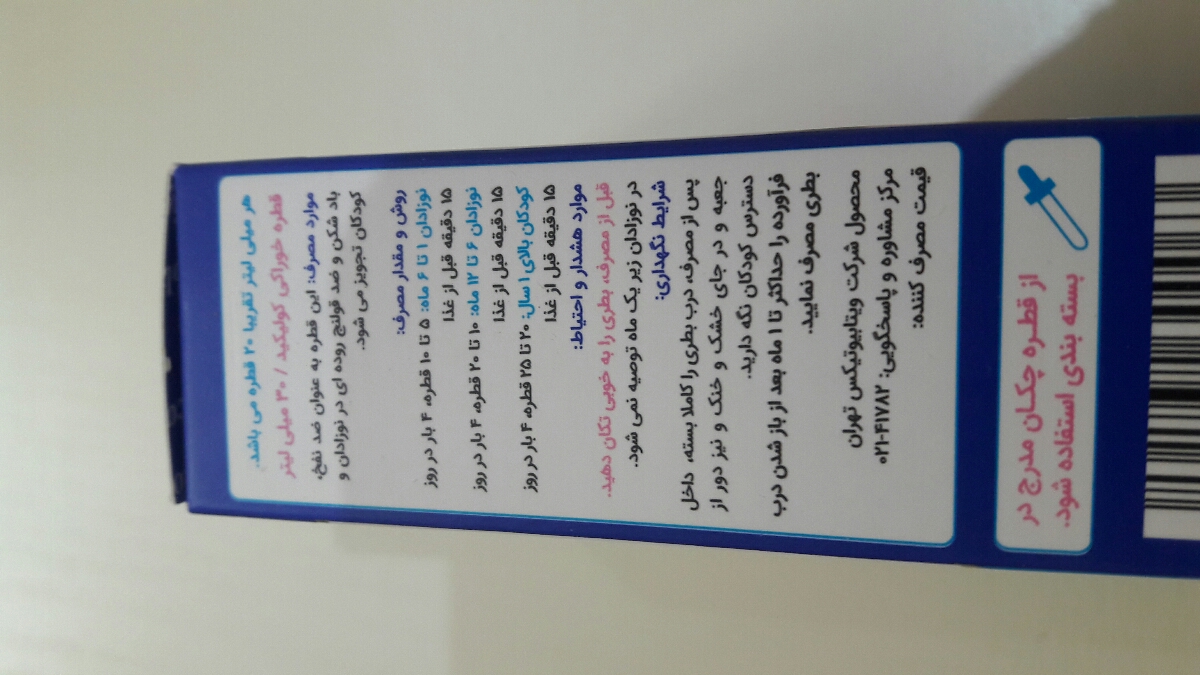 هر میلی لیتر تقریبا ۲۰ قطره می باشد.
قطره خوراکی کولیکید / ۳۰ میلی لیتر
موارد مصرف: این قطره به عنوان ضد نفخ،
باد شکن و ضد قولنج روده ای در نوزادان و
کودکان تجویز می شود.
روش و مقدار مصرف:
نوزادان ۱ تا ۶ ماه: ۵ تا ۱۰ قطره، ۴ بار در روز
۱۵ دقیقه قبل از غذا
نوزادان ۶ تا ۱۲ ماه: ۱۰ تا ۲۰ قطره، ۴ بار در روز
۱۵ دقیقه قبل از غذا
کودکان بالای ۱ سال: ۲۰ تا ۲۵ قطره، ۴ بار در روز
۱۵ دقیقه قبل از غذا
موارد هشدار و احتیاط:
قبل از مصرف، بطری را به خوبی تکان دهید.
در نوزادان زیر یک ماه توصیه نمی شود.
شرایط نگهداری:
پس از مصرف، درب بطری را کاملا بسته، داخل
جعبه و در جای خشک و خنک و نیز دور از
دسترس کودکان نگه دارید.
فرآورده را حداکثر تا ۱ ماه بعد از باز شدن درب
بطری مصرف نمایید.
محصول شرکت ویتابیوتیکس تهران
مرکز مشاوره و پاسخگویی: ۴۱۷۸۲-۰۲۱
قیمت مصرف کننده:
از قطره چکان مدرج در
بسته بندی استفاده شود.